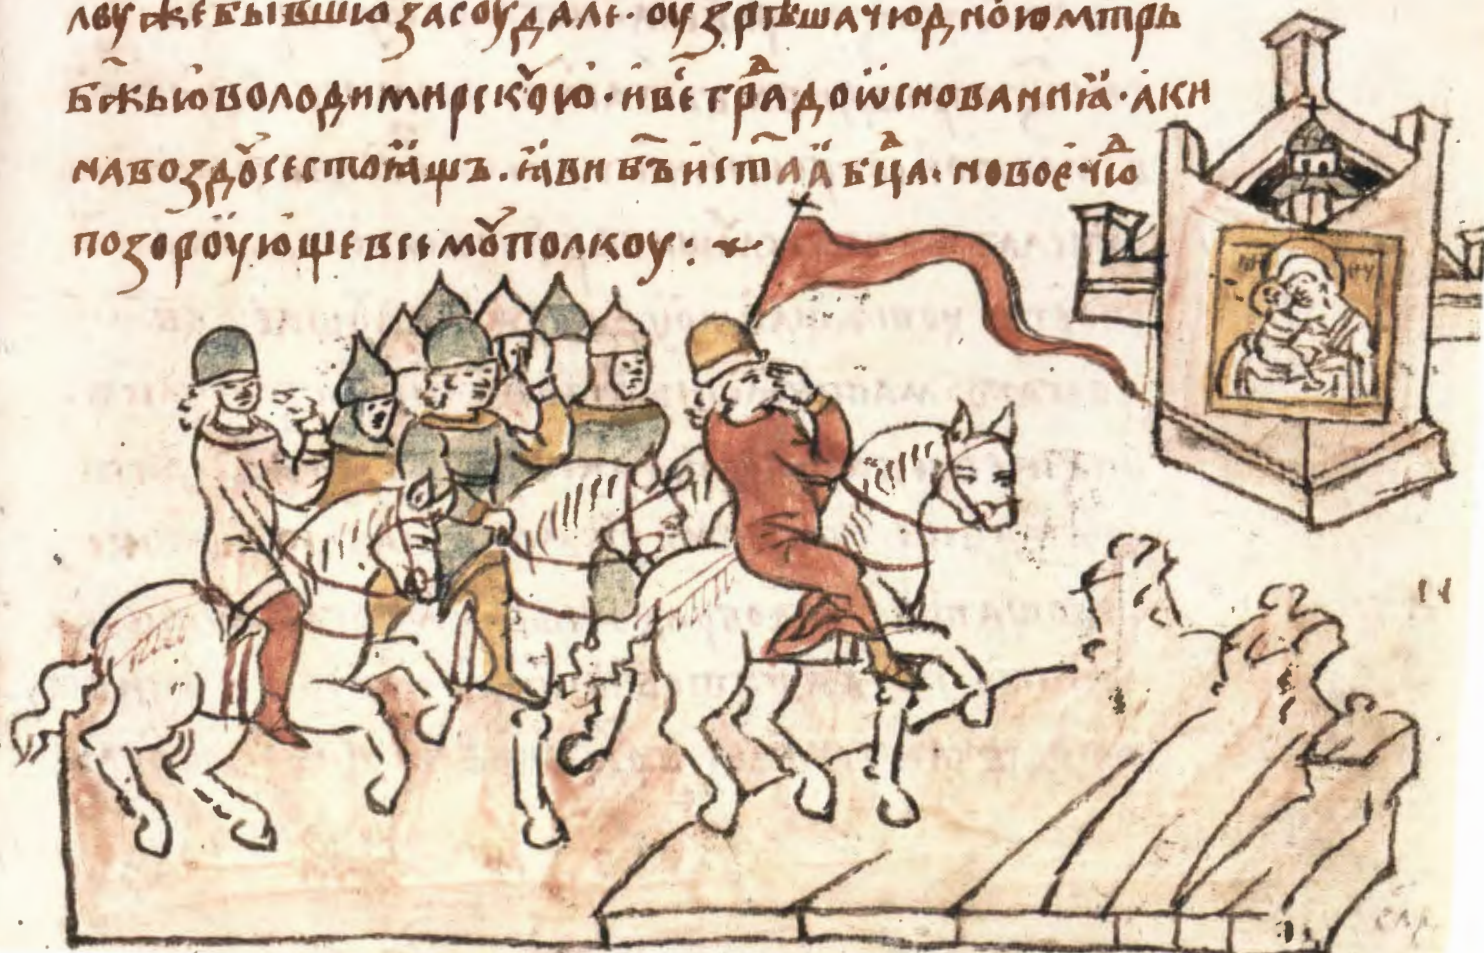 лву же бывшю за соудале. оузрѣша чюдною м҃трь
б҃жью володимирскоую. и все градо ѿ основаниꙗ. аки
на воздоусе стоꙗщь. ꙗви бъ и с҃таꙗ б҃ца. ново е чю
позороующе всемоу полкоу :~